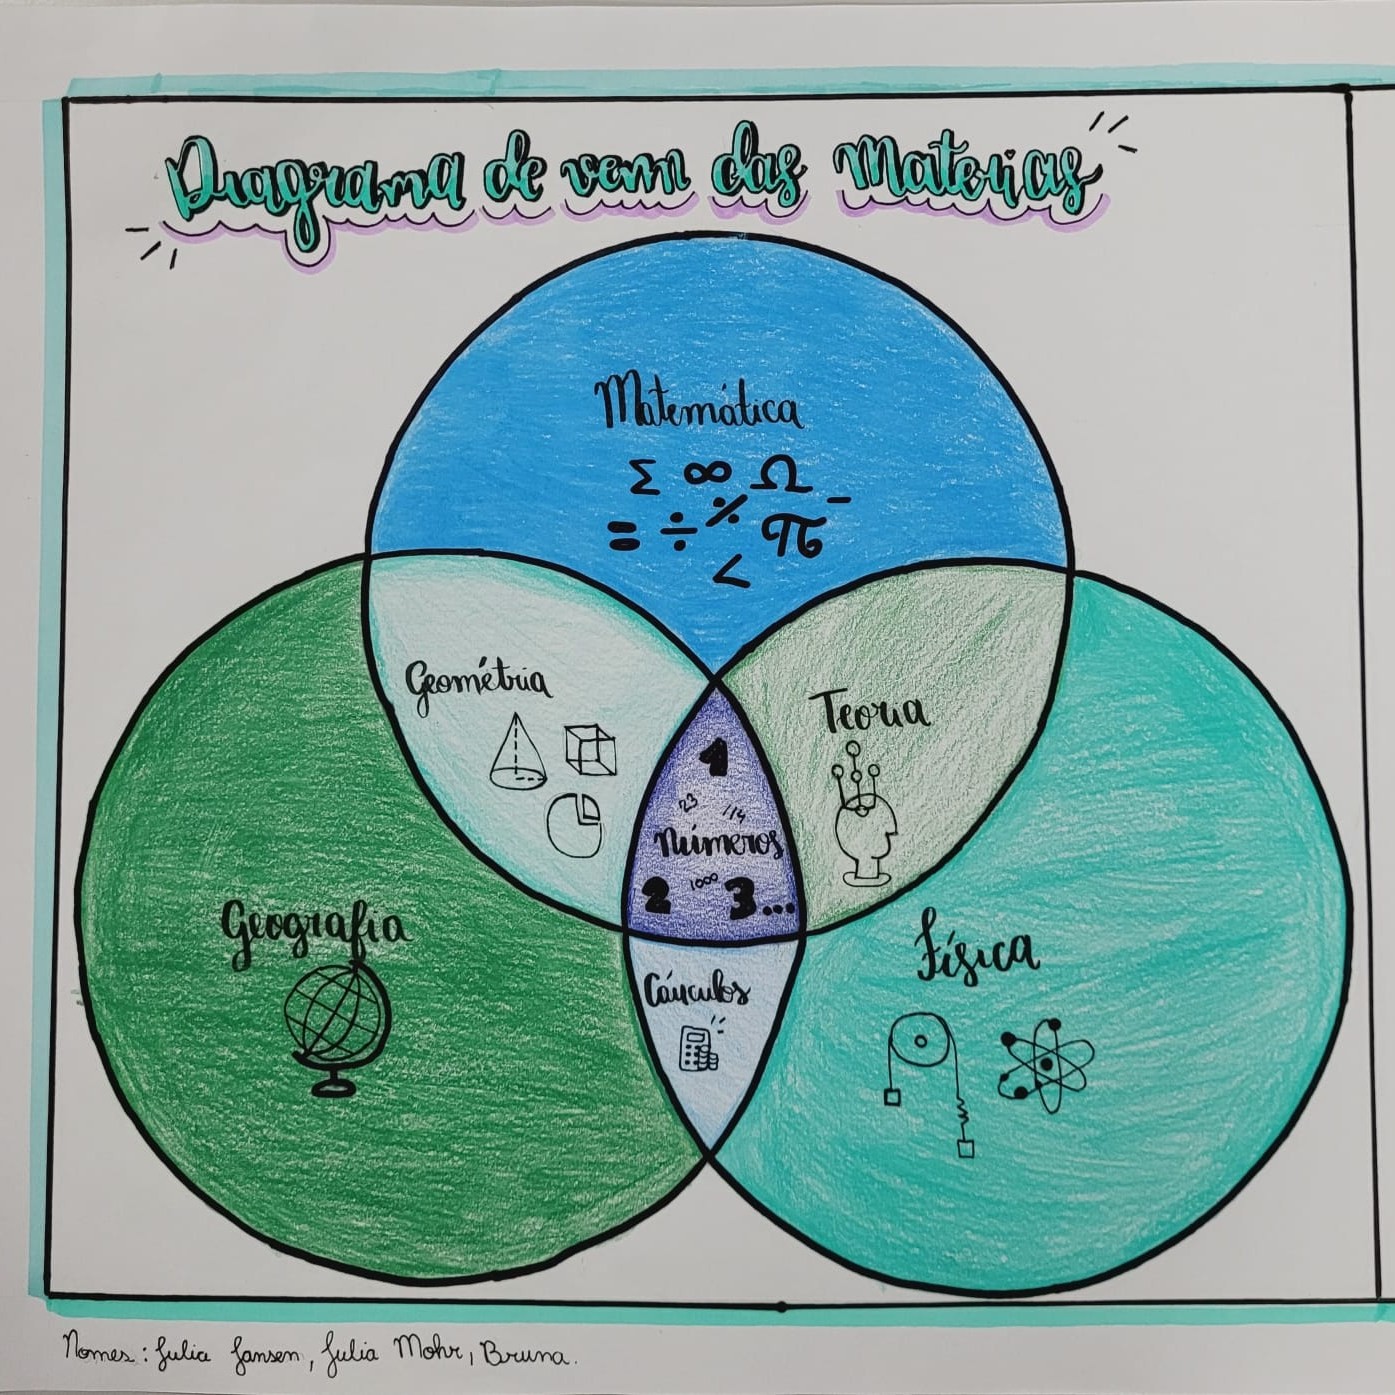 Diagrama de venn das Matérias
Matemática
Σ ∞ Ω
= ÷ % π -
<
Geométria
Teoria
1
23 114
Números
2 1000 3...
Geografia
Física
Cálculos
Nomes: Julia Jansen, Julia Mohr, Bruna.